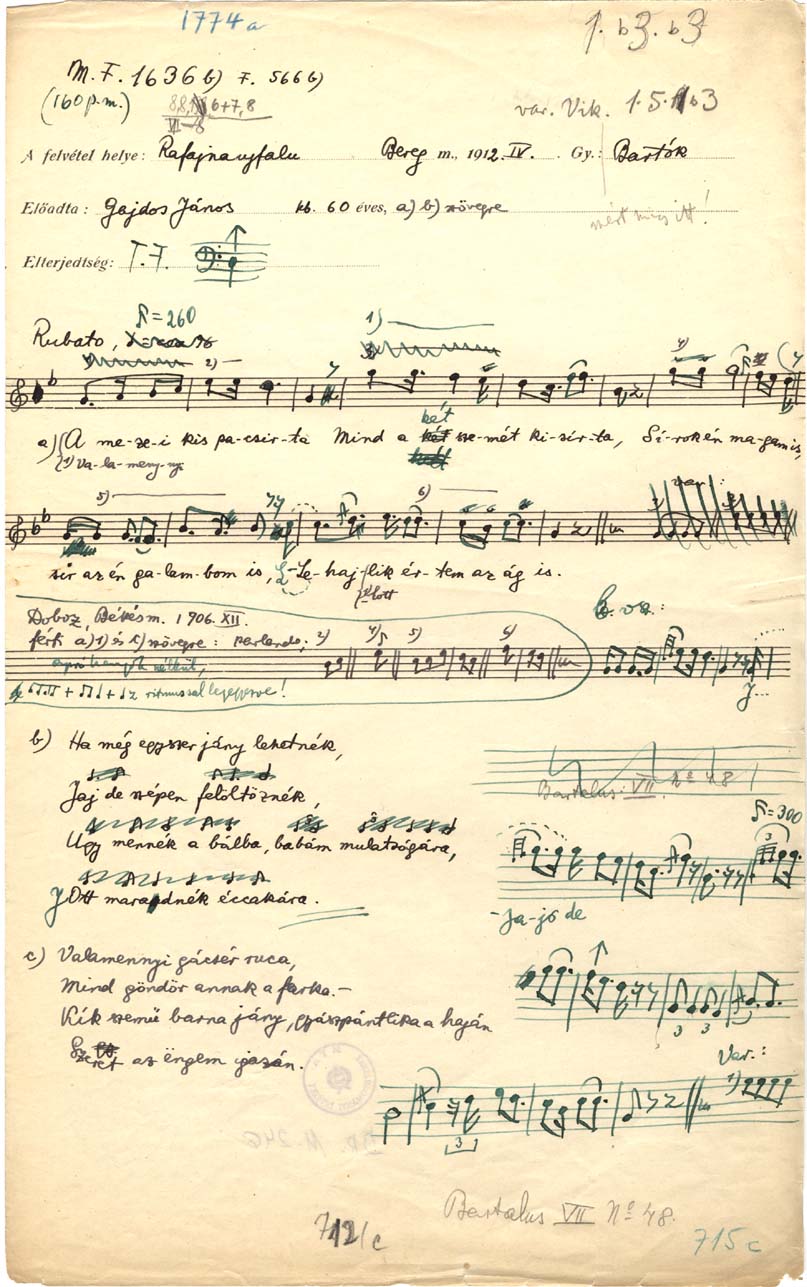 1774a
1. b3. b3
M. F. 1636 b) F. 566 b)
(160 p.m.)
6+7, 8
VI–8
var. Vik. 1. 5. b3
A felvétel helye: Rafajnaujfalu Bereg m., 1912. IV. Gy.: Bartók
Előadta: Gajdos János kb. 60 éves, a) b) szövegre
Elterjedtség: T. F.
Rubato, = 260
1)
2)
4)
a) A me-ze-i kis pa-csir-ta Mind a két sze-mét ki-sír-ta, Sí-rok én ma-gam is,
1) Va-la-meny-nyi
5)
6)
var:
sír az én ga-lam-bom is, Le-haj-lik ér-tem az ág is.
Doboz, Békésm. 1906. XII.
férfi a) 1) és c) szövegre: parlando;
2) 4) 5) 6)
ritmussal lejegyezve!
b. va.:
J...
b) Ha még egyszer jány lehetnék,
Jaj de szépen felöltöznék,
Úgy mennék a bálba, babám mulatságára,
Ott maradnék éccakára.
Bartalus VII. No 48
= 300
-Ja-jó de
c) Valamennyi gácsér ruca,
Mind göndör annak a farka. –
Kík szemű barna jány, gyászpántlika a haján
Szeret az ëngem igazán.
Var.:
1)
Bartalus VII No 48.
712/c
715 c